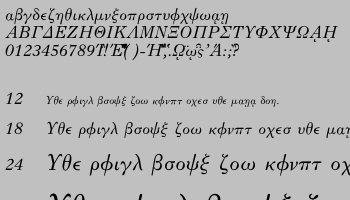 αβγδεζηθικλμνξοπρστυφχψωᾳῃ
ΑΒΓΔΕΖΗΘΙΚΛΜΝΞΟΠΡΣΤΥΦΧΨΩᾼῌ
0123456789
12 Υθε ρφιγλ βσοψξ ζοω κφνπτ οχεσ υθε μαῃᾳ δοη.
18 Υθε ρφιγλ βσοψξ ζοω κφνπτ οχεσ υθε μαῃ
24 Υθε ρφιγλ βσοψξ ζοω κφνπτ οχ